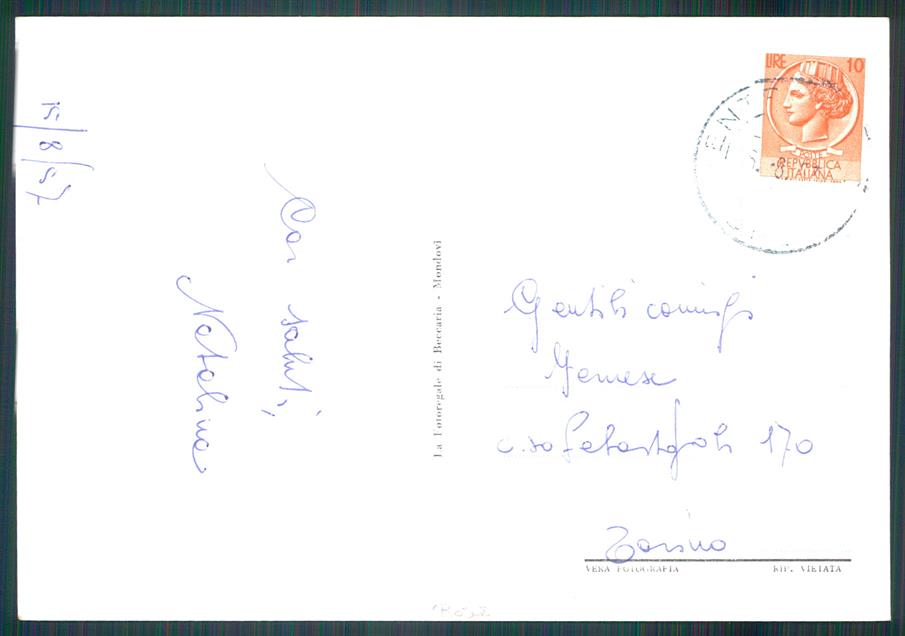 15/8/57
Cari saluti,
Natalina
La Fotoregale di Beccaria - Mondovì
LIRE 10
POSTE
REPVBBLICA
ITALIANA
ENT
Gentili coniugi
c.so Sebastopoli 170
Torino
VERA FOTOGRAFIA
RIP. VIETATA